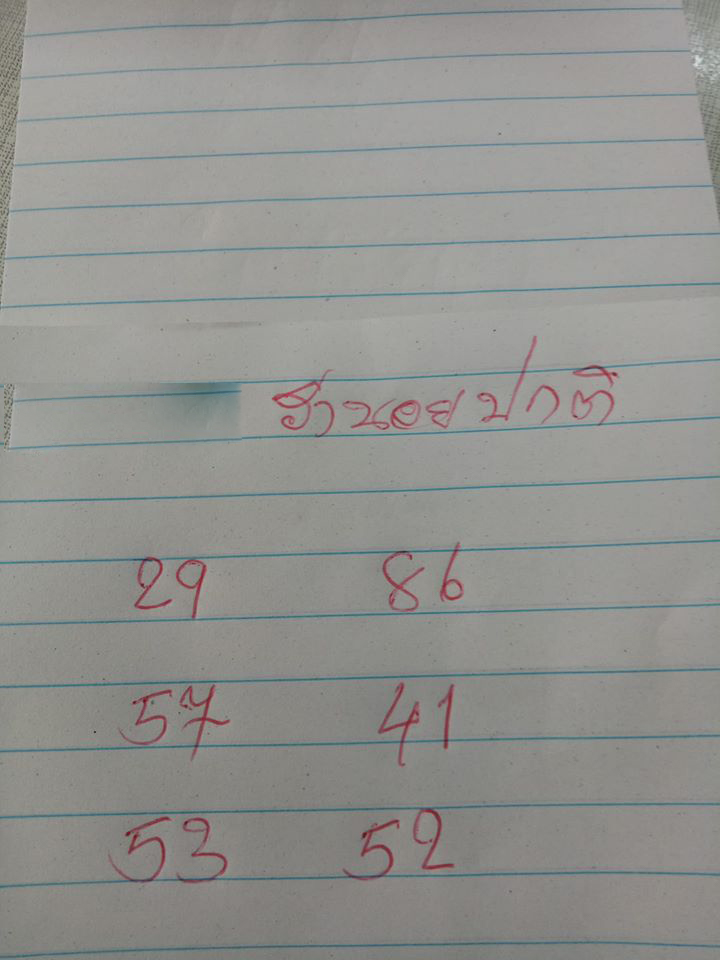 ฮานอยปกติ
29 86
57 41
53 52